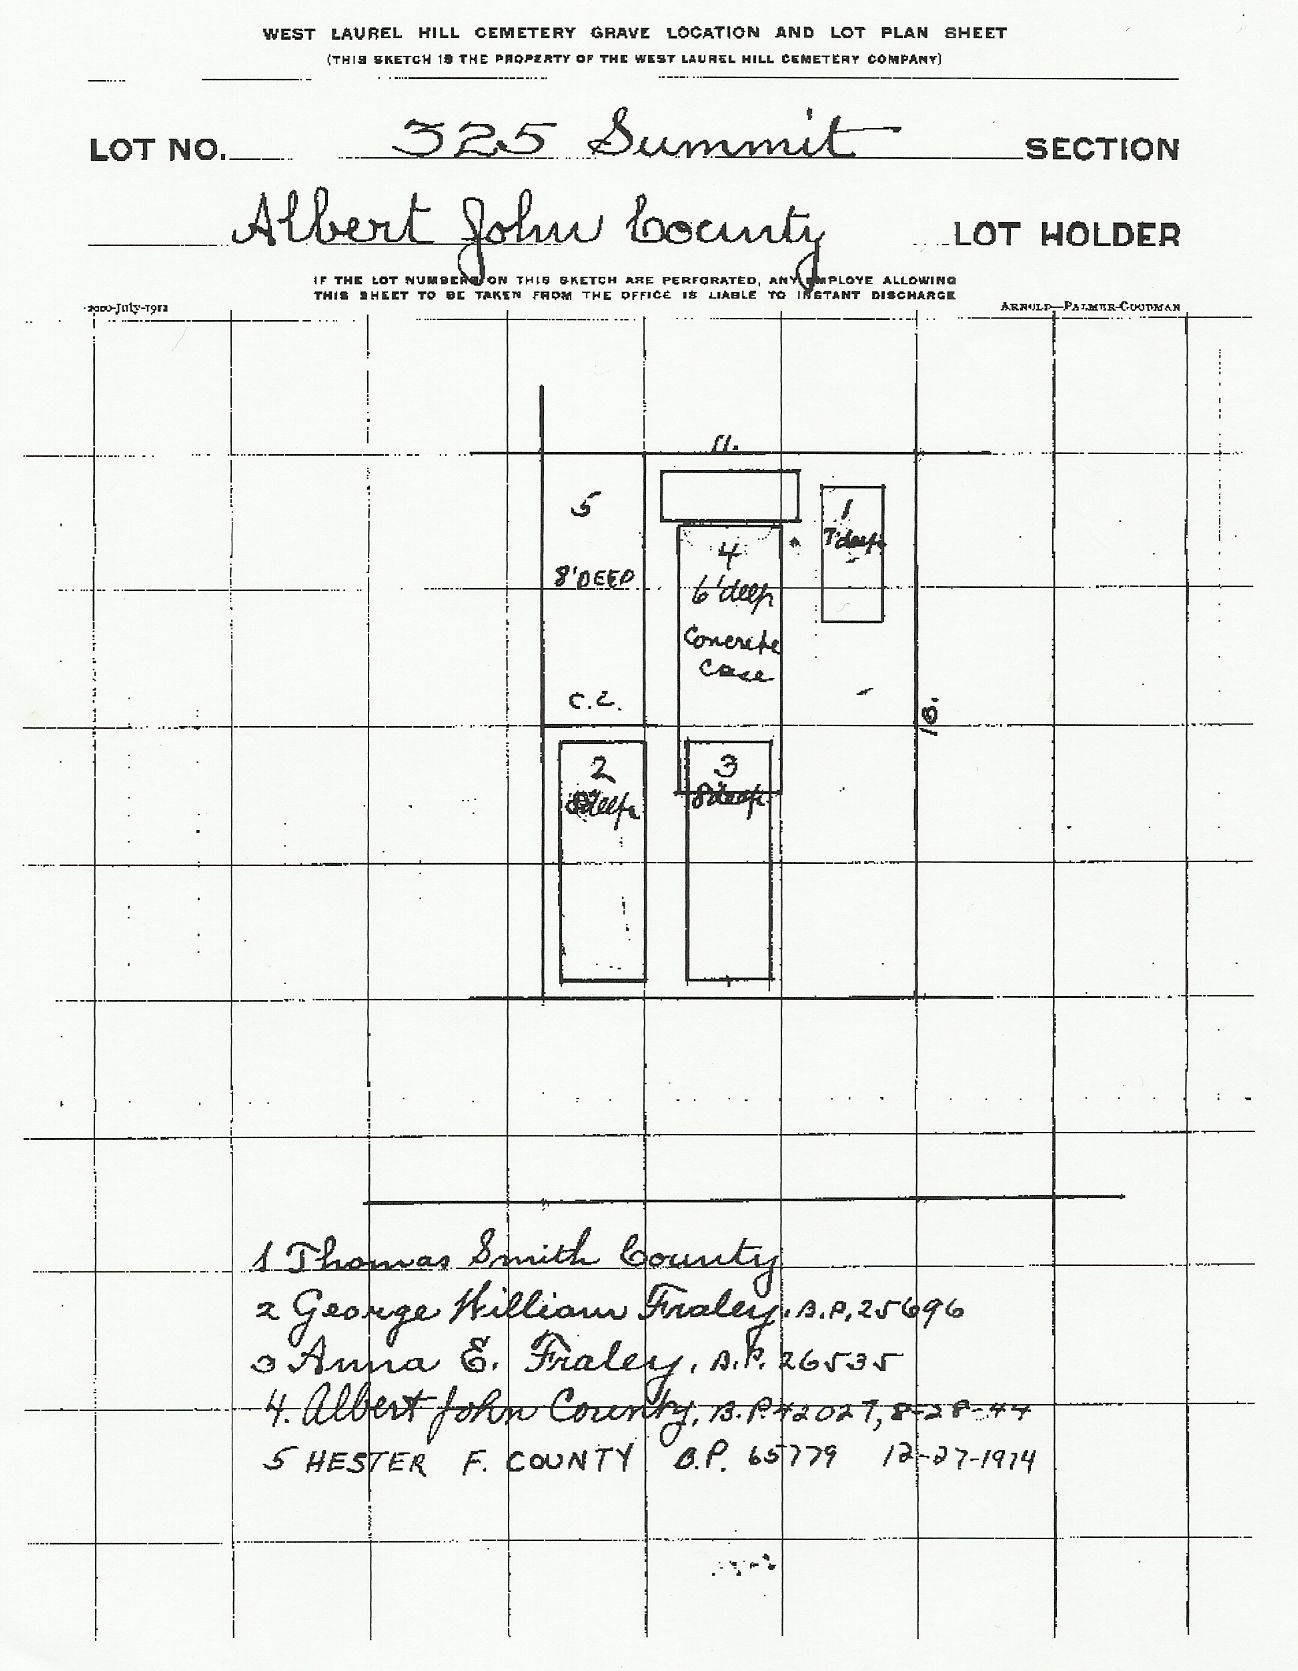 WEST LAUREL HILL CEMETERY GRAVE LOCATION AND LOT PLAN SHEET
(THIS SKETCH IS THE PROPERTY OF THE WEST LAUREL HILL CEMETERY COMPANY)
LOT NO. 325 Summit SECTION
Albert John County LOT HOLDER
IF THE LOT NUMBERS ON THIS SKETCH ARE PERFORATED, ANY EMPLOYE ALLOWING
THIS SHEET TO BE TAKEN FROM THE OFFICE IS LIABLE TO INSTANT DISCHARGE
2000-July-1912 ARNOLD-PALMER-GOODMAN
11.
5
8' DEEP
C.C.
4
6' deep
Concrete
Case
1
7' deep
18.
2
8' deep
3
8' deep
1 Thomas Smith County
2 George William Fraley. B.P. 25696
3 Anna E. Fraley, B.P. 26535
4. Albert John County, B.P. 42027, 8-28-44
5 HESTER F. COUNTY B.P. 65779 12-27-1974